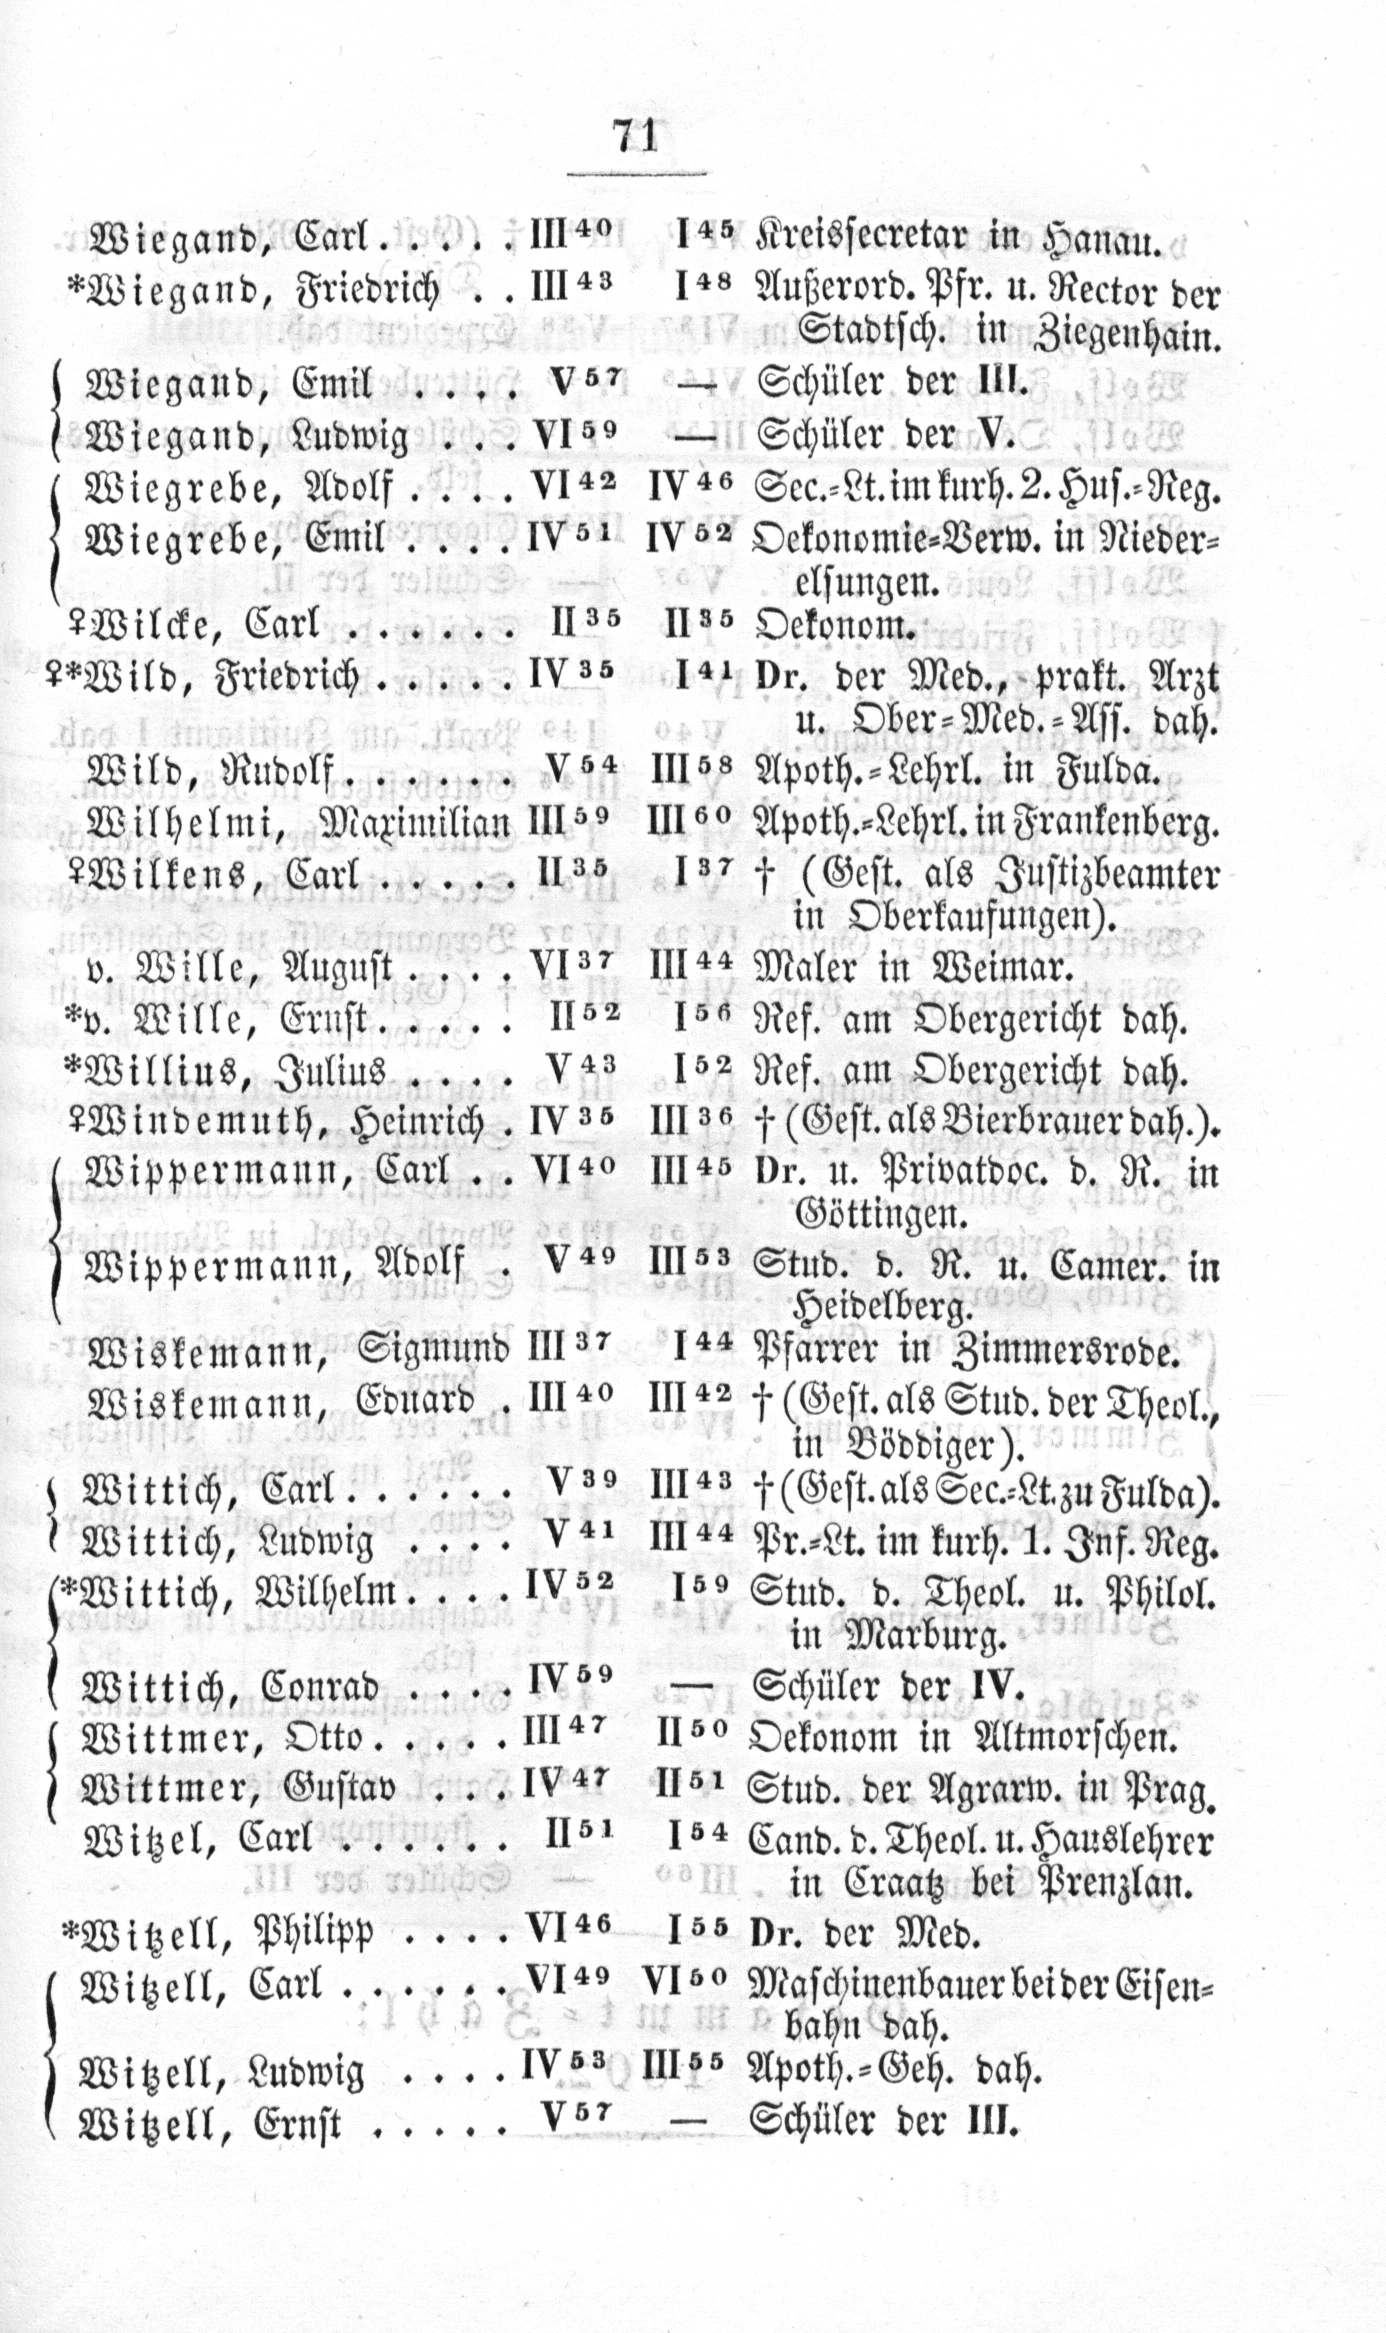 71
Wiegand, Carl. . . . . III 40 I 45 Kreissecretar in Hanau.
*Wiegand, Friedrich . . III 43 I 48 Außerord. Pfr. u. Rector der
Stadtsch. in Ziegenhain.
Wiegand, Emil . . . . V 57 — Schüler der III.
Wiegand, Ludwig . . . VI 59 — Schüler der V.
Wiegrebe, Adolf . . . . VI 42 IV 46 Sec.-Lt. im kurh. 2. Hus.-Reg.
Wiegrebe, Emil . . . . IV 51 IV 52 Oekonomie-Verw. in Nieder-
elsungen.
♀Wilcke, Carl . . . . . . II 35 II 35 Oekonom.
♀*Wild, Friedrich . . . . . IV 35 I 41 Dr. der Med., prakt. Arzt
u. Ober-Med.-Ass. dah.
Wild, Rudolf. . . . . . V 54 III 58 Apoth.-Lehrl. in Fulda.
Wilhelmi, Maximilian III 59 III 60 Apoth.-Lehrl. in Frankenberg.
♀Wilkens, Carl . . . . . II 35 I 37 † (Gest. als Justizbeamter
in Oberkaufungen).
v. Wille, August . . . . VI 37 III 44 Maler in Weimar.
*v. Wille, Ernst. . . . . II 52 I 56 Ref. am Obergericht dah.
*Willius, Julius . . . . V 43 I 52 Ref. am Obergericht dah.
♀Windemuth, Heinrich . IV 35 III 36 † (Gest. als Bierbrauer dah.).
Wippermann, Carl . . VI 40 III 45 Dr. u. Privatdoc. d. R. in
Göttingen.
Wippermann, Adolf . V 49 III 53 Stud. d. R. u. Camer. in
Heidelberg.
Wiskemann, Sigmund III 37 I 44 Pfarrer in Zimmersrode.
Wiskemann, Eduard . III 40 III 42 † (Gest. als Stud. der Theol.,
in Böddiger).
Wittich, Carl . . . . . . V 39 III 43 † (Gest. als Sec.-Lt. zu Fulda).
Wittich, Ludwig . . . . V 41 III 44 Pr.-Lt. im kurh. 1. Inf. Reg.
*Wittich, Wilhelm . . . . IV 52 I 59 Stud. d. Theol. u. Philol.
in Marburg.
Wittich, Conrad . . . . IV 59 — Schüler der IV.
Wittmer, Otto . . . . . III 47 II 50 Oekonom in Altmorschen.
Wittmer, Gustav . . . IV 47 II 51 Stud. der Agrarw. in Prag.
Witzel, Carl . . . . . . II 51 I 54 Cand. d. Theol. u. Hauslehrer
in Craatz bei Prenzlan.
*Witzell, Philipp . . . . VI 46 I 55 Dr. der Med.
Witzell, Carl . . . . . . VI 49 VI 50 Maschinenbauer bei der Eisen-
bahn dah.
Witzell, Ludwig . . . . IV 53 III 55 Apoth.-Geh. dah.
Witzell, Ernst . . . . . V 57 — Schüler der III.